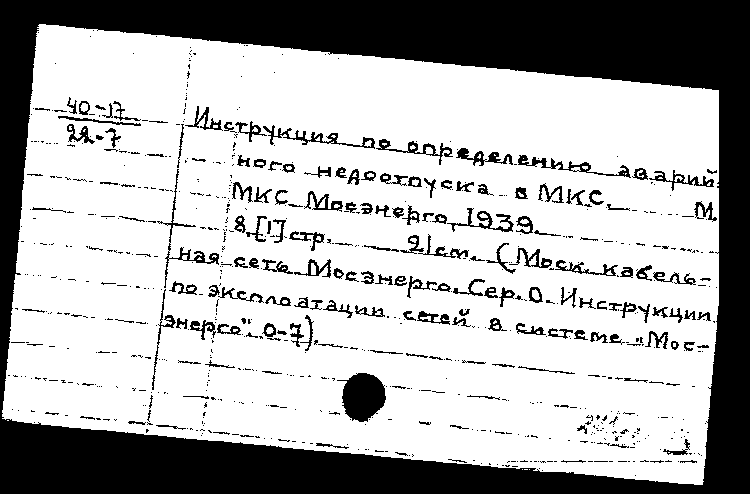 40-17
22-7
Инструкция по определению аварий-
ного недоотпуска в МКС. М.
МКС Мосэнерго, 1939.
8,[1] стр. 21 см. (Моск. кабель-
ная сеть Мосэнерго. Сер. О. Инструкции
по эксплоатации сетей в системе "Мос-
энерго". О-7).